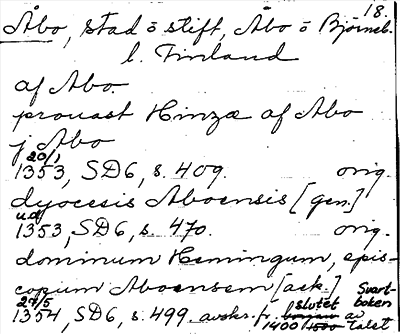 18.
Åbo, stad o stift, Åbo o Björneb.
l. Finland
af Abo.
prouast Hinzæ af Abo
j Abo
20/1
1353, SD6, s. 409. orig.
dyocesis Aboensis [gen.]
u.d.
1353, SD6, s. 470. orig.
dominum Hemingum, epis-
copum Aboensem [ack.] Svart-
27/5 slutet boken
1354, SD6, s. 499 avskr. fr. av
1400 talet